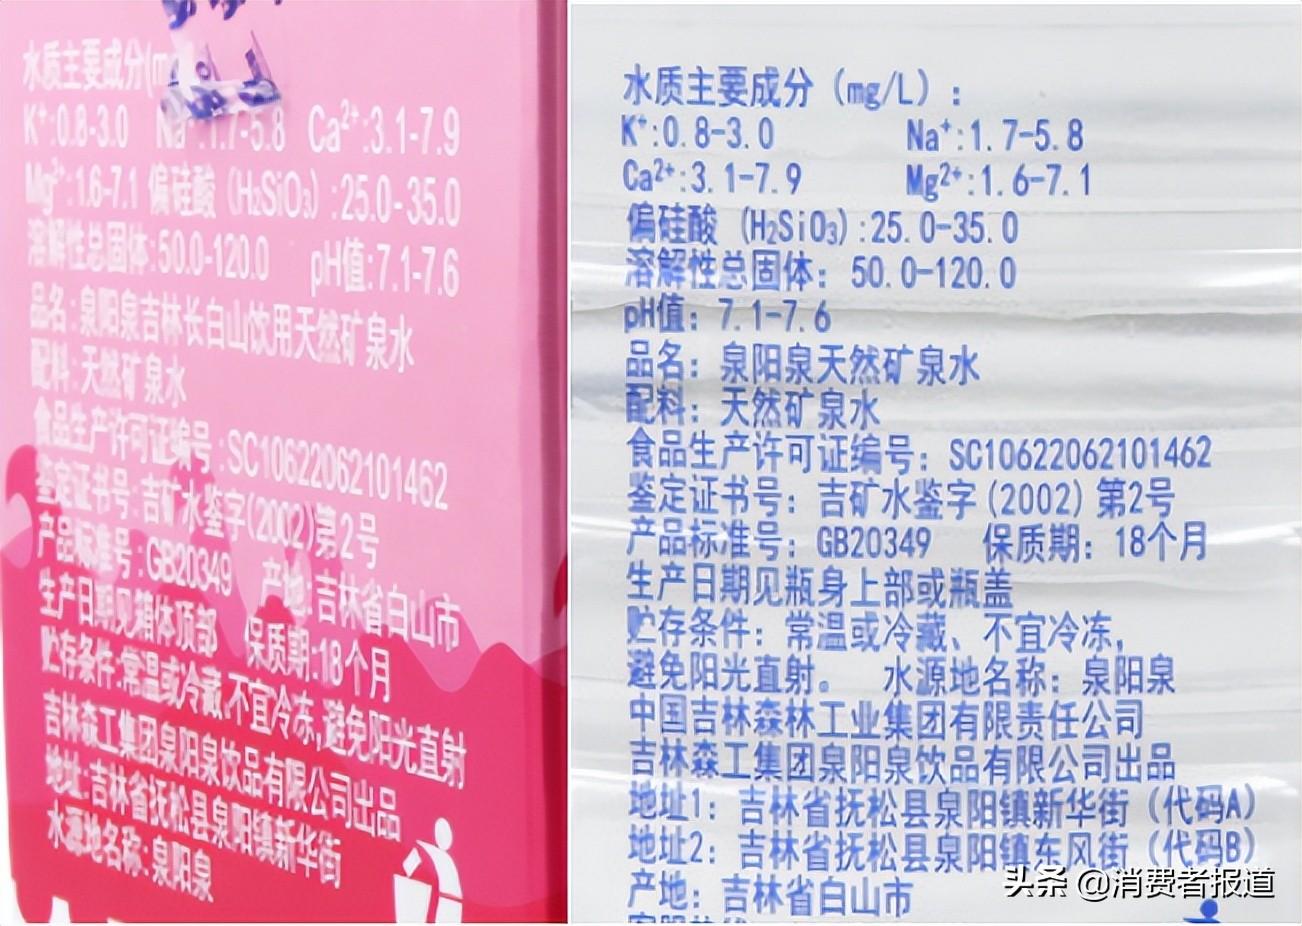 水质主要成分(m
K⁺:0.8-3.0 Na⁺:1.7-5.8 Ca²⁺:3.1-7.9
Mg²⁺:1.6-7.1 偏硅酸(H₂SiO₃):25.0-35.0
溶解性总固体:50.0-120.0 pH值:7.1-7.6
品名:泉阳泉吉林长白山饮用天然矿泉水
配料:天然矿泉水
食品生产许可证编号:SC10622062101462
鉴定证书号:吉矿水鉴字(2002)第2号
产品标准号:GB20349 产地:吉林省白山市
生产日期见箱体顶部 保质期:18个月
贮存条件:常温或冷藏,不宜冷冻,避免阳光直射
吉林森工集团泉阳泉饮品有限公司出品
地址:吉林省抚松县泉阳镇新华街
水源地名称:泉阳泉
水质主要成分(mg/L):
K⁺:0.8-3.0 Na⁺:1.7-5.8
Ca²⁺:3.1-7.9 Mg²⁺:1.6-7.1
偏硅酸(H₂SiO₃):25.0-35.0
溶解性总固体: 50.0-120.0
pH值: 7.1-7.6
品名: 泉阳泉天然矿泉水
配料: 天然矿泉水
食品生产许可证编号: SC10622062101462
鉴定证书号: 吉矿水鉴字(2002)第2号
产品标准号: GB20349 保质期: 18个月
生产日期见瓶身上部或瓶盖
贮存条件: 常温或冷藏、不宜冷冻,
避免阳光直射。 水源地名称: 泉阳泉
中国吉林森林工业集团有限责任公司
吉林森工集团泉阳泉饮品有限公司出品
地址1: 吉林省抚松县泉阳镇新华街(代码A)
地址2: 吉林省抚松县泉阳镇东风街(代码B)
产地: 吉林省白山市
头条 @消费者报道